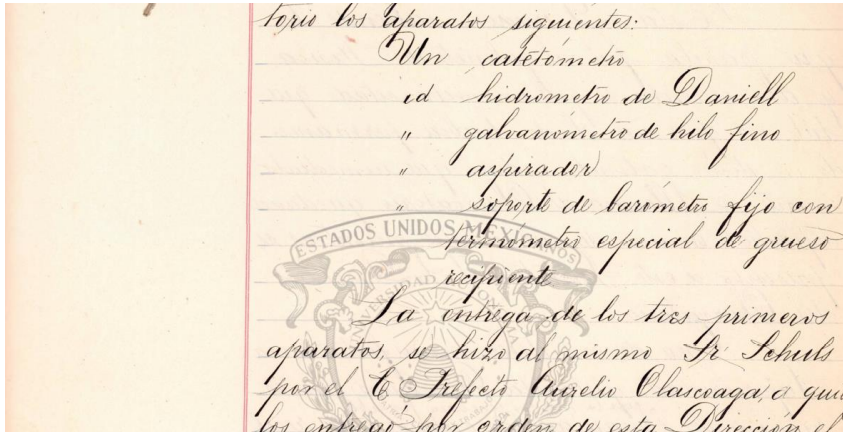 torio los aparatos siguientes:
Un catetómetro
id hidrometro de Daniell
" galvanómetro de hilo fino
" aspirador
" soporte de barómetro fijo con
termometro especial de grueso
recipiente
La entrega de los tres primeros
aparatos, se hizo al mismo Sr Schuls
por el C Prefecto Aurelio Olascoaga, a quien
los entregó por orden de esta Dirección el
ESTADOS UNIDOS MEXICANOS